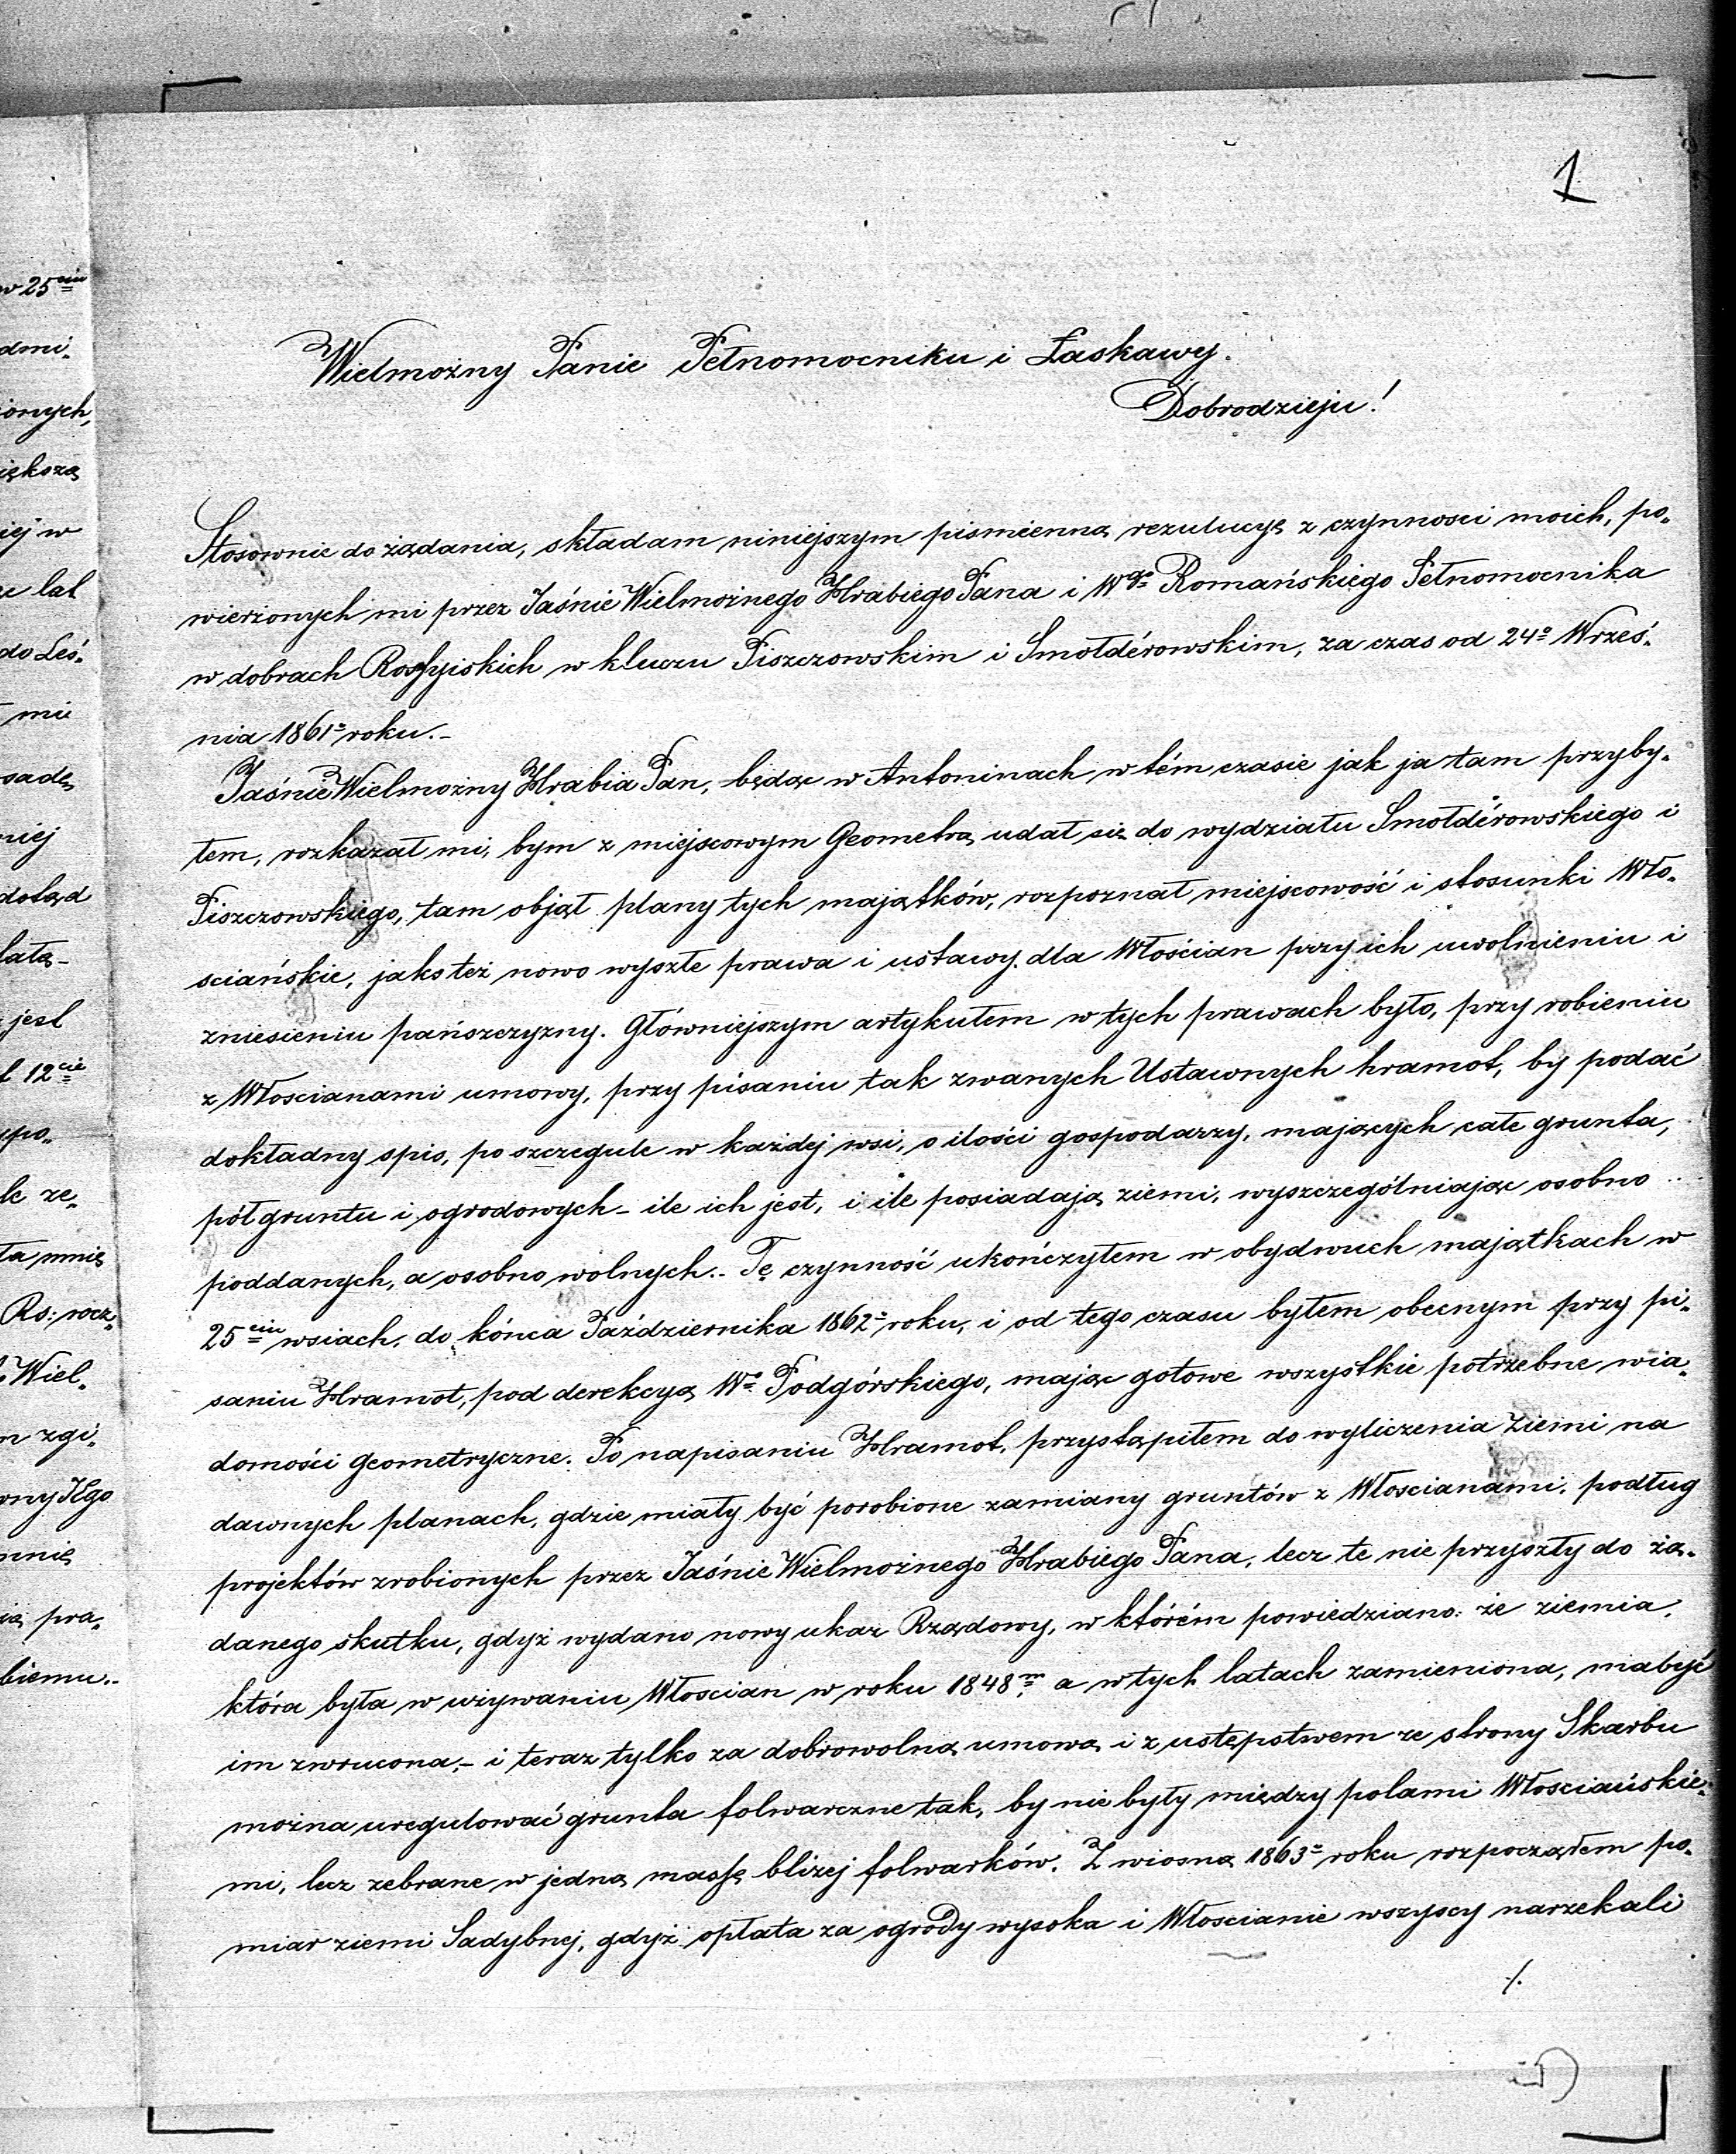 1
Wielmożny Panie Pełnomocniku i Łaskawy.
Dobrodzieju!
Stosownie do żądania, składam niniejszym pismienną rezulucyę z czynnosci moich, po„
wierzonych mi przez Jaśnie Wielmożnego Hrabiego Pana i Wgo Romańskiego Pełnomocnika
w dobrach Rossyiskich w kluczu Piszczowskim i Smołdérowskim, za czas od 24o Wrześ„
nia 1861o roku.-
Jaśnie Wielmożny Hrabia Pan, będąc w Antoninach w tém czasie jak ja tam przyby„
łem, rozkazał mi, bym z miejscowym Geometrą udał się do wydziału Smołdérowskiego i
Piszczowskiego, tam objął plany tych majątków, rozpoznał miejscowość i stosunki Wło„
sciańskie, jako też nowo wyszłe prawa i ustawy dla Włościan przy ich uwolnieniu i
zniesieniu pańszczyzny. Główniejszym artykułem w tych prawach było, przy robieniu
z Włoscianami umowy, przy pisaniu tak zwanych Ustawnych hramot, by podać
dokładny spis, po szczegule w każdej wsi, o ilości gospodarzy, mających całe grunta,
pół gruntu i ogrodowych - ile ich jest, i ile posiadają ziemi, wyszczególniając osobno
poddanych, a osobno wolnych.- Tę czynność ukończyłem w obydwuch majątkach w
25ciu wsiach, do końca Października 1862o roku, i od tego czasu byłem obecnym przy pi„
saniu Hramot, pod derekcyą Wo Podgórskiego, mając gotowe wszystkie potrzebne wia„
domości geometryczne. Po napisaniu Hramot, przystąpiłem do wyliczenia Ziemi na
dawnych planach, gdzie miały być porobione zamiany gruntów z Włoscianami, podług
projektów zrobionych przez Jaśnie Wielmożnego Hrabiego Pana, lecz te nie przyszły do żą„
danego skutku, gdyż wydano nowy ukaz Rządowy, w którém powiedziano: że ziemia,
która była w używaniu Włoscian w roku 1848m, a w tych latach zamieniona, ma być
im zwrucona,- i teraz tylko za dobrowolną umową i z ustępstwem ze strony Skarbu
można uregulować grunta folwarczne tak, by nie były między polami Włosciańskie„
mi, lecz zebrane w jedną massę bliżej folwarków. Z wiosną 1863o roku rozpocząłem po„
miar ziemi Sadybnej, gdyż opłata za ogrody wysoka i Włoscianie wszyscy narzekali
./.
w 25ciu
dmi„
ionych,
iększą
iej w
lat
do Leś„
mie
sadę
niej
dotąd
łatą -
jest
12cie
ypo„
le ze„
ła mnie
Rs: rocz„
Wiel„
n zgi„
ony Jlgo
mnie
ią pra„
biemu.-